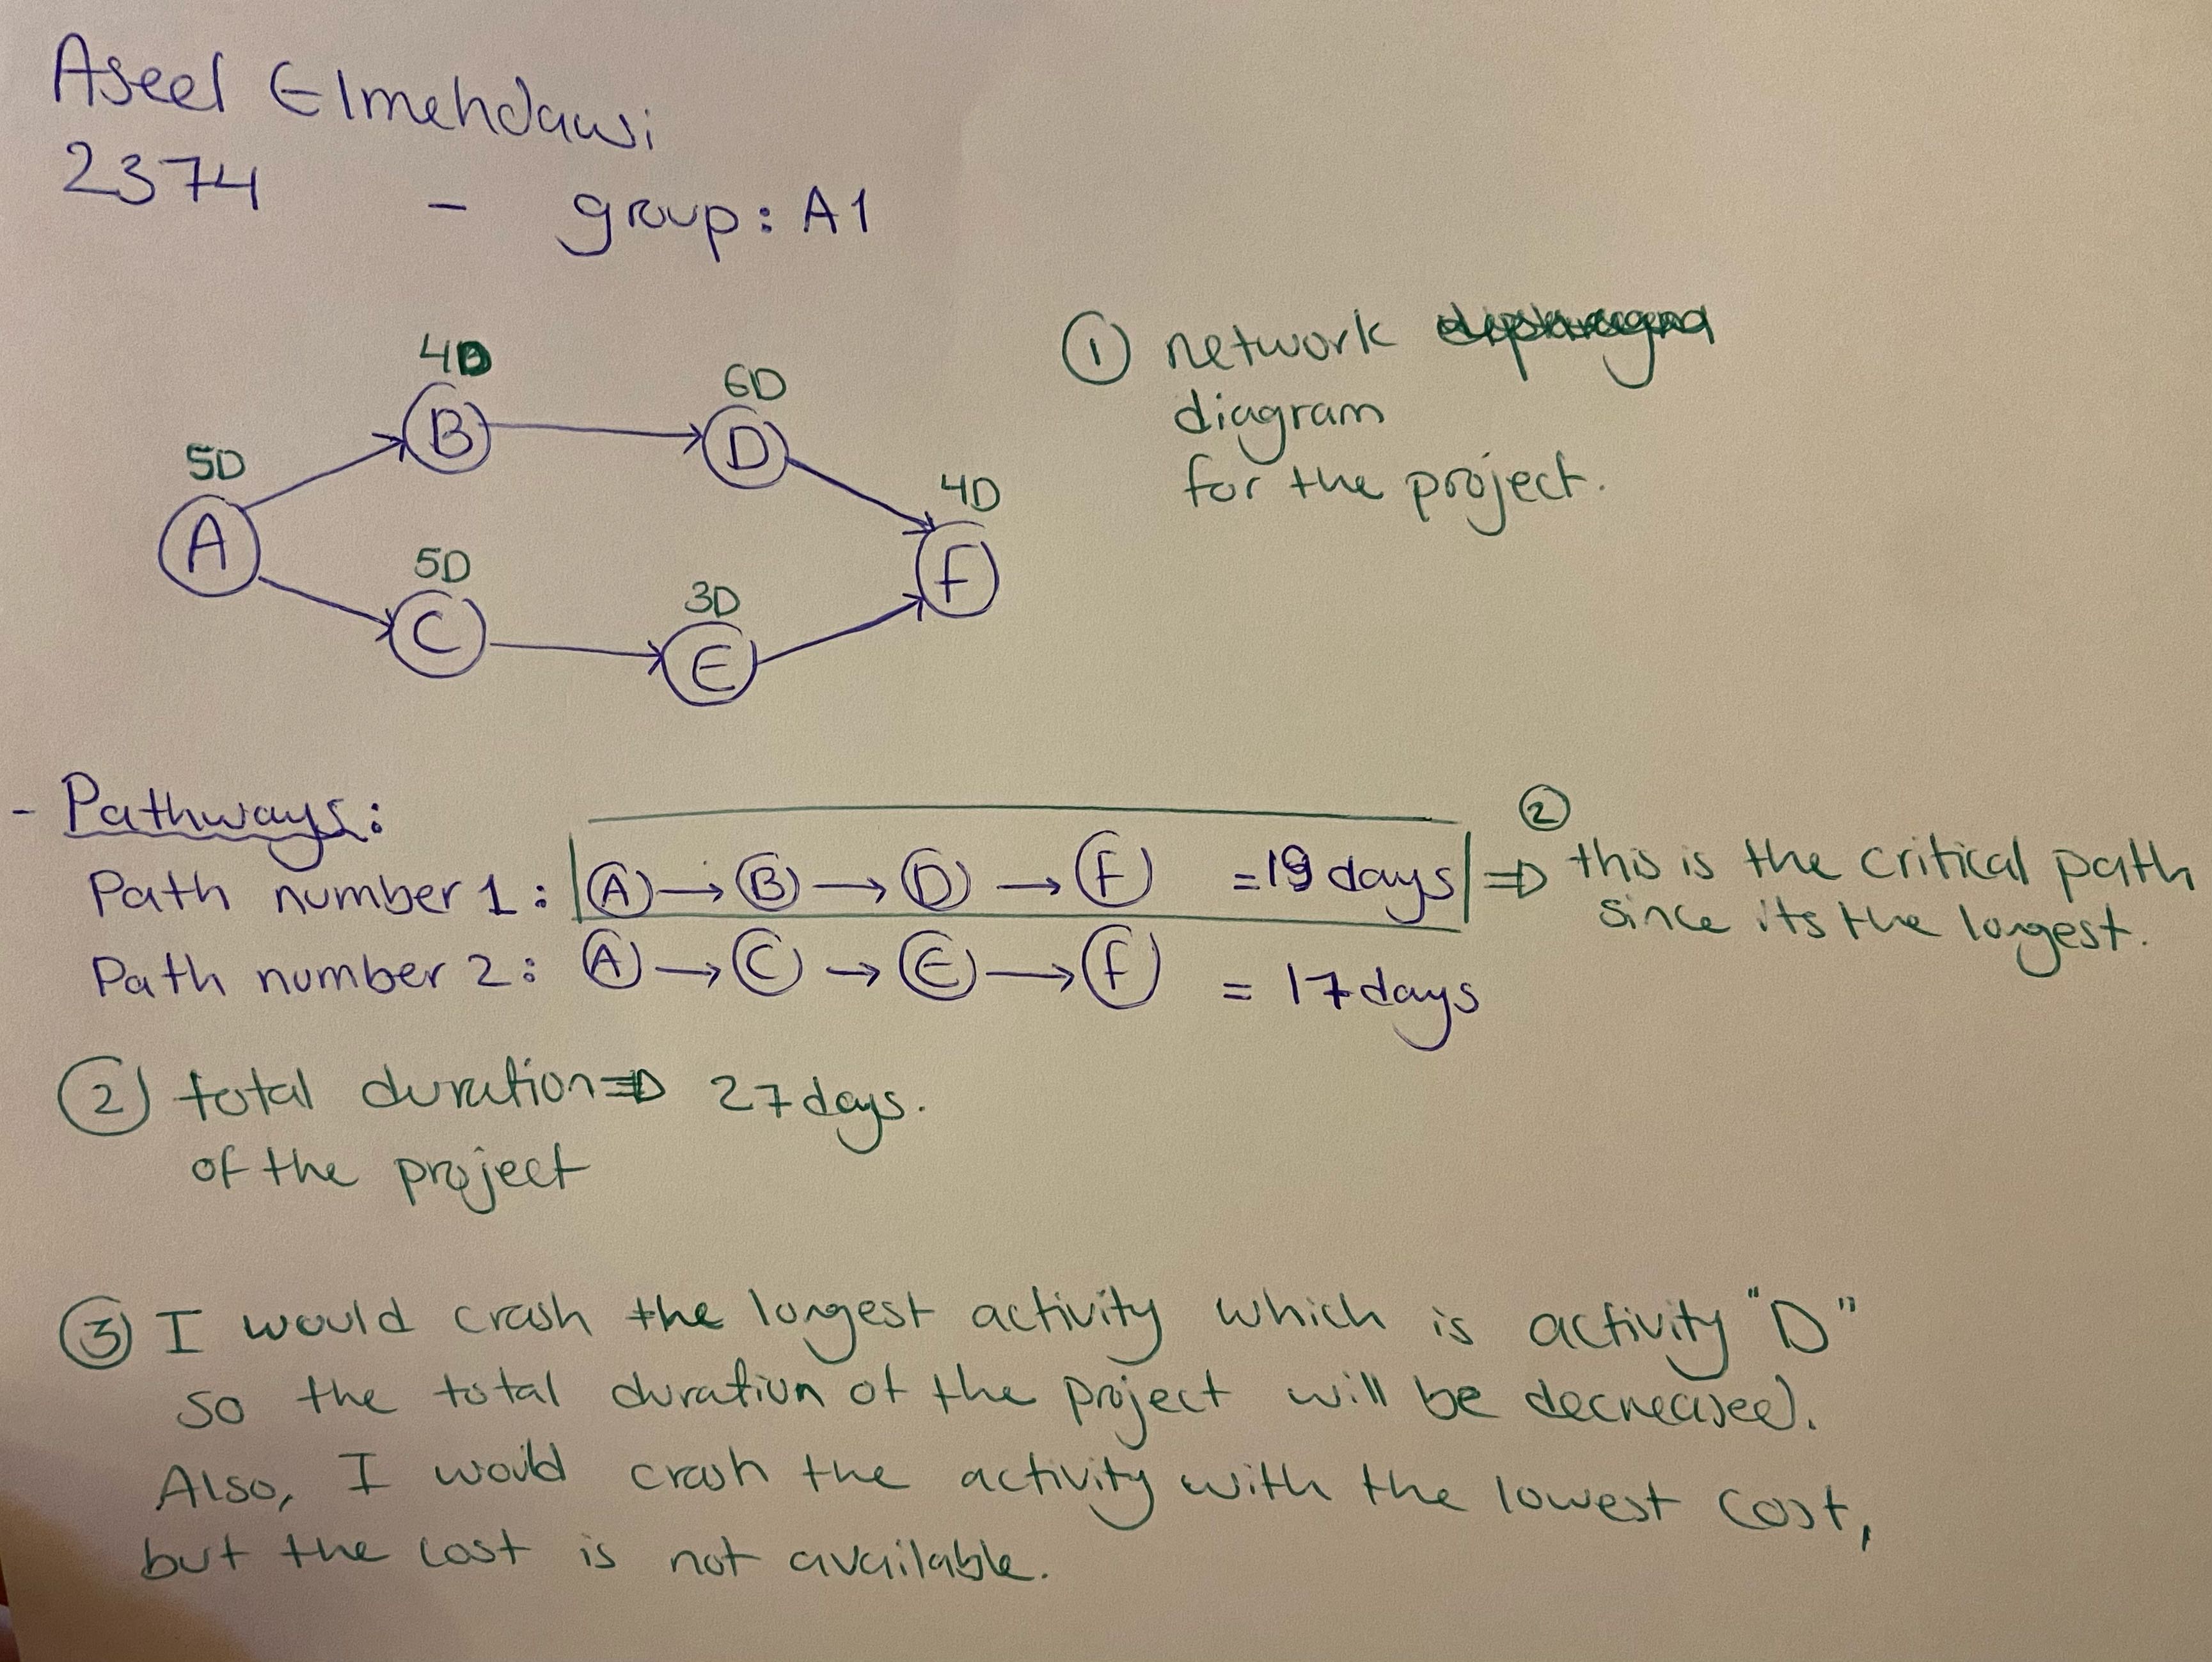 Aseel Elmehdawi
2374 - group: A1
① network
diagram
for the project.
4D
6D
5D
B
D
4D
A
5D
F
C
3D
E
- Pathways:
②
Path number 1: A → B → D → F = 19 days ⇒ this is the critical path
since its the longest.
Path number 2: A → C → E → F = 17 days
② total duration ⇒ 27 days.
of the project
③ I would crash the longest activity which is activity "D"
so the total duration of the project will be decreased.
Also, I would crash the activity with the lowest cost,
but the cost is not available.